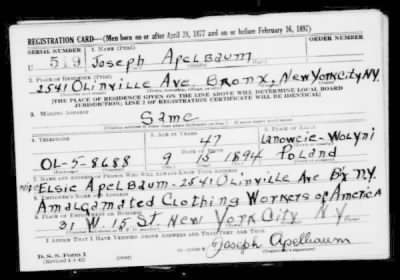 REGISTRATION CARD—(Men born on or after April 28, 1877 and on or before February 16, 1897)
SERIAL NUMBER 1. NAME (Print) ORDER NUMBER
U 519 Joseph Apelbaum
2. PLACE OF RESIDENCE (Print)
2541 Olinville Ave Bronx. New York City N.Y.
[THE PLACE OF RESIDENCE GIVEN ON THE LINE ABOVE WILL DETERMINE LOCAL BOARD
JURISDICTION; LINE 2 OF REGISTRATION CERTIFICATE WILL BE IDENTICAL]
3. MAILING ADDRESS
Same
4. TELEPHONE 5. AGE IN YEARS 6. PLACE OF BIRTH
47 Lanowcie-Wolyni
OL-5-8688 9 15 1894 Poland
7. NAME AND ADDRESS OF PERSON WHO WILL ALWAYS KNOW YOUR ADDRESS
Wife Elsie Apelbaum-2541 Olinville Ave B'x N.Y.
8. EMPLOYER'S NAME AND ADDRESS
Amalgamated Clothing Workers of America
9. PLACE OF EMPLOYMENT OR BUSINESS
31 W. 15 St. New York City N.Y
I AFFIRM THAT I HAVE VERIFIED ABOVE ANSWERS AND THAT THEY ARE TRUE.
D. S. S. Form 1
Joseph Apelbaum